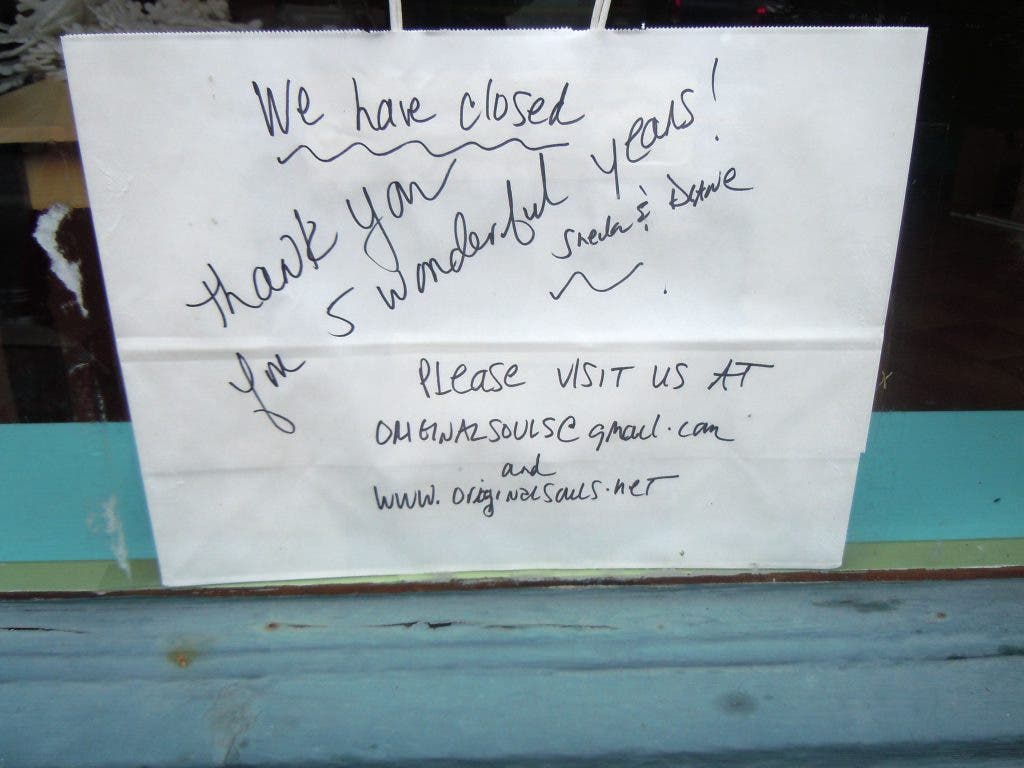 We have closed
thank you
for 5 wonderful years!
Sheila & Diane
PLease VISIT US AT
ORIGINALSOULS@gmail.com
and
WWW.OriginalSouls.net